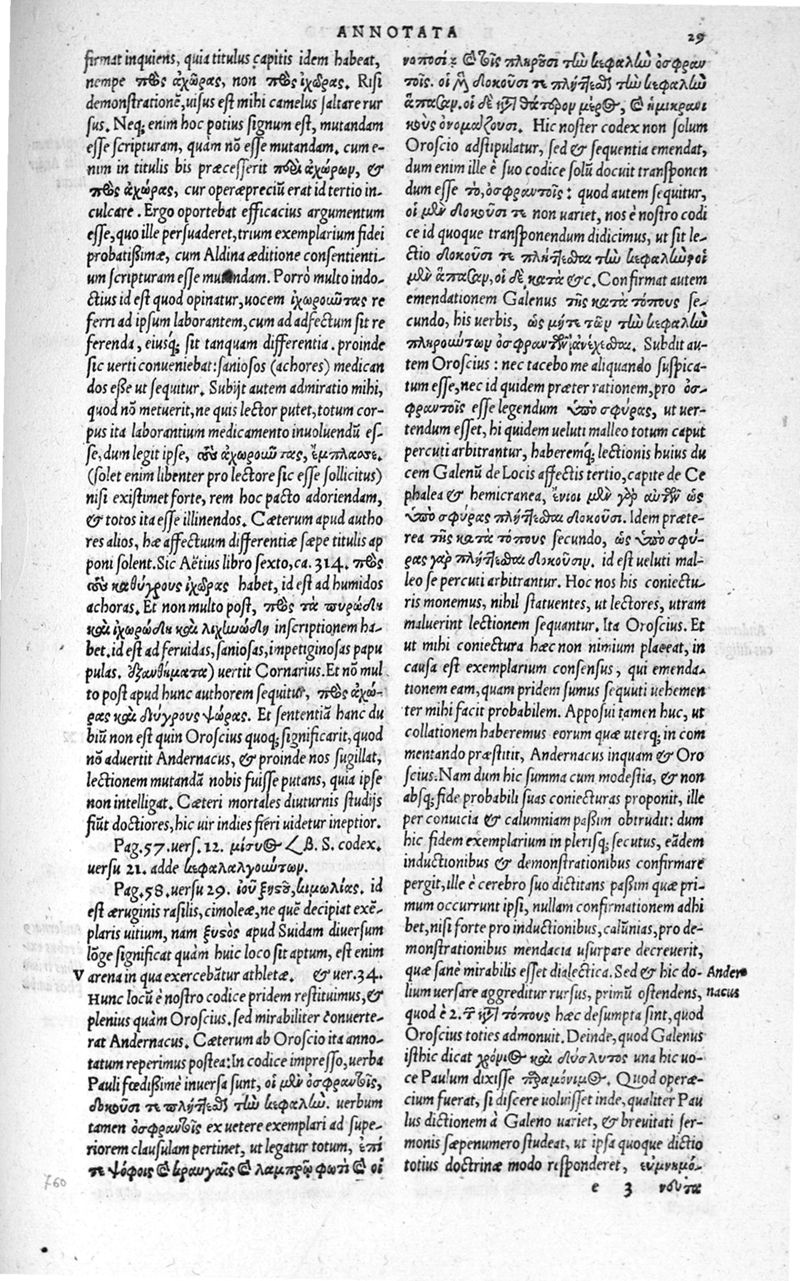 ANNOTATA
29
firmat inquiens, quia titulus capitis idem habeat,
nempe πρὸς ἀχῶρας, non πρὸς ἰχῶρας. Risi
demonstrationē, uisus est mihi camelus saltare rur
sus. Neq; enim hoc potius signum est, mutandam
esse scripturam, quàm nō esse mutandam. cum e-
nim in titulis bis præcesserit πρὸς ἀχώρων, &
πρὸς ἀχώρας, cur operæpreciū erat id tertio in-
culcare. Ergo oportebat efficacius argumentum
esse, quo ille persuaderet, trium exemplarium fidei
probatißimæ, cum Aldina æditione consentienti-
um scripturam esse mutandam. Porrò multo indo-
ctius id est quod opinatur, uocem ἰχωροιῶτας re
ferri ad ipsum laborantem, cum ad adfectum sit re
ferenda, eiusq; sit tanquam differentia. proinde
sic uerti conueniebat: saniosos (achores) medican
dos eße ut sequitur. Subijt autem admiratio mihi,
quod nō metuerit, ne quis lector putet, totum cor-
pus ita laborantium medicamento inuoluendū es-
se, dum legit ipse,
(solet enim libenter pro lectore sic esse sollicitus)
nisi existimet forte, rem hoc pacto adoriendam,
& totos ita esse illinendos. Cæterum apud autho
res alios, hæ affectuum differentiæ sæpe titulis ap
poni solent. Sic Aëtius libro sexto, ca. 314. πρὸς
τοὺς καθύγρους ἰχῶρας habet, id est ad humidos
achoras. Et non multo post, πρὸς τὰ πυρώδη
καὶ ἰχωρώδη καὶ λιχηνώδη inscriptionem ha-
bet. id est ad feruidas, saniosas, impetiginosas papu
pulas. ἐξανθήματα) uertit Cornarius. Et nō mul
to post apud hunc authorem sequitur, πρὸς ἀχώ-
ρας καὶ διύγρους ψώρας. Et sententiā hanc du
biū non est quin Oroscius quoq; significarit, quod
nō aduertit Andernacus, & proinde nos sugillat,
lectionem mutandā nobis fuisse putans, quia ipse
non intelligat. Cæteri mortales diuturnis studijs
fiūt doctiores, hic uir indies fieri uidetur ineptior.
Pag. 57. uers. 12. μίσυος B. S. codex.
uersu 21. adde κεφαλαλγούντων.
Pag. 58. uersu 29. ἰοῦ ξυστοῦ, κιμωλίας. id
est æruginis rasilis, cimoleæ, ne quē decipiat exē-
plaris uitium, nam ξυστὸς apud Suidam diuersum
lōge significat quàm huic loco sit aptum, est enim
V arena in qua exercebātur athletæ. & uer. 34.
Hunc locū è nostro codice pridem restituimus, &
plenius quàm Oroscius. sed mirabiliter conuerte-
rat Andernacus. Cæterum ab Oroscio ita anno-
tatum reperimus postea: In codice impresso, uerba
Pauli fœdißimè inuersa sunt, οἱ μὲν ὀσφραντοῖς,
δοκοῦσί τε πλήττεσθαι τὼ κεφαλὼ. uerbum
tamen ὀσφραντοῖς ex uetere exemplari ad supe-
riorem clausulam pertinet, ut legatur totum, ἐπί
τε ψόφοις καὶ κραυγαῖς καὶ λαμπρῷ φωτὶ καὶ οἰ
760
νοποσίᾳ καὶ τοῖς πληροῦσι τὼ κεφαλὼ ὀσφραν
τοῖς. οἱ μὲν δοκοῦσί τε πλήττεσθαι τὼ κεφαλὼ
ἅπασαν. οἱ δὲ κατὰ θάτερον μέρος, καὶ ἡμικρανι
κοὺς ὀνομάζουσι. Hic noster codex non solum
Oroscio adstipulatur, sed & sequentia emendat,
dum enim ille è suo codice solū docuit transponen
dum esse τὸ, ὀσφραντοῖς: quod autem sequitur,
οἱ μὲν δοκοῦσί τε non uariet, nos è nostro codi
ce id quoque transponendum didicimus, ut sit le-
ctio δοκοῦσί τε πλήττεσθαι τὼ κεφαλὼ οἱ
μὲν ἅπασαν, οἱ δὲ κατὰ &c. Confirmat autem
emendationem Galenus τῆς κατὰ τόπους se-
cundo, his uerbis, ὡς μήτε τῶν τὼ κεφαλὼ
πληρούντων ὀσφραντῶν ἀνέχεσθαι. Subdit au-
tem Oroscius: nec tacebo me aliquando suspica-
tum esse, nec id quidem præter rationem, pro ὀσ-
φραντοῖς esse legendum ὑπὸ σφύρας, ut uer-
tendum esset, hi quidem ueluti malleo totum caput
percuti arbitrantur, haberemq; lectionis huius du
cem Galenū de Locis affectis tertio, capite de Ce
phalea & hemicranea, ἔνιοι μὲν γὰρ αὐτῶν ὡς
ὑπὸ σφύρας πλήττεσθαι δοκοῦσι. Idem præte-
rea τῆς κατὰ τόπους secundo, ὡς ὑπὸ σφύ-
ρας γὰρ πλήττεσθαι δοκοῦσιν. id est ueluti mal-
leo se percuti arbitrantur. Hoc nos his coniectu-
ris monemus, nihil statuentes, ut lectores, utram
maluerint lectionem sequantur. Ita Oroscius. Et
ut mihi coniectura hæc non nimium placeat, in
causa est exemplarium consensus, qui emenda-
tionem eam, quam pridem sumus sequuti uehemen
ter mihi facit probabilem. Apposui tamen huc, ut
collationem haberemus eorum quæ uterq; in com
mentando præstitit, Andernacus inquam & Oro
scius. Nam dum hic summa cum modestia, & non
absq; fide probabili suas coniecturas proponit, ille
per conuicia & calumniam paßim obtrudit: dum
hic fidem exemplarium in plerisq; secutus, eādem
inductionibus & demonstrationibus confirmare
pergit, ille è cerebro suo dictitans paßim quæ pri-
mum occurrunt ipsi, nullam confirmationem adhi
bet, nisi forte pro inductionibus, calūnias, pro de-
monstrationibus mendacia usurpare decreuerit,
quæ sanè mirabilis esset dialectica. Sed & hic do-
lium uersare aggreditur rursus, primū ostendens,
Ander
nacus
quod è 2. τῶν κατὰ τόπους hæc desumpta sint, quod
Oroscius toties admonuit. Deinde, quod Galenus
isthic dicat χρόνιος καὶ δύσλυτος una hic uo-
ce Paulum dixisse παράμονος. Quod operæ-
cium fuerat, si discere uoluisset inde, qualiter Pau
lus dictionem à Galeno uariet, & breuitati ser-
monis sæpenumero studeat, ut ipsa quoque dictio
totius doctrinæ modo responderet, εὐμνημό-
e 3 νευτα